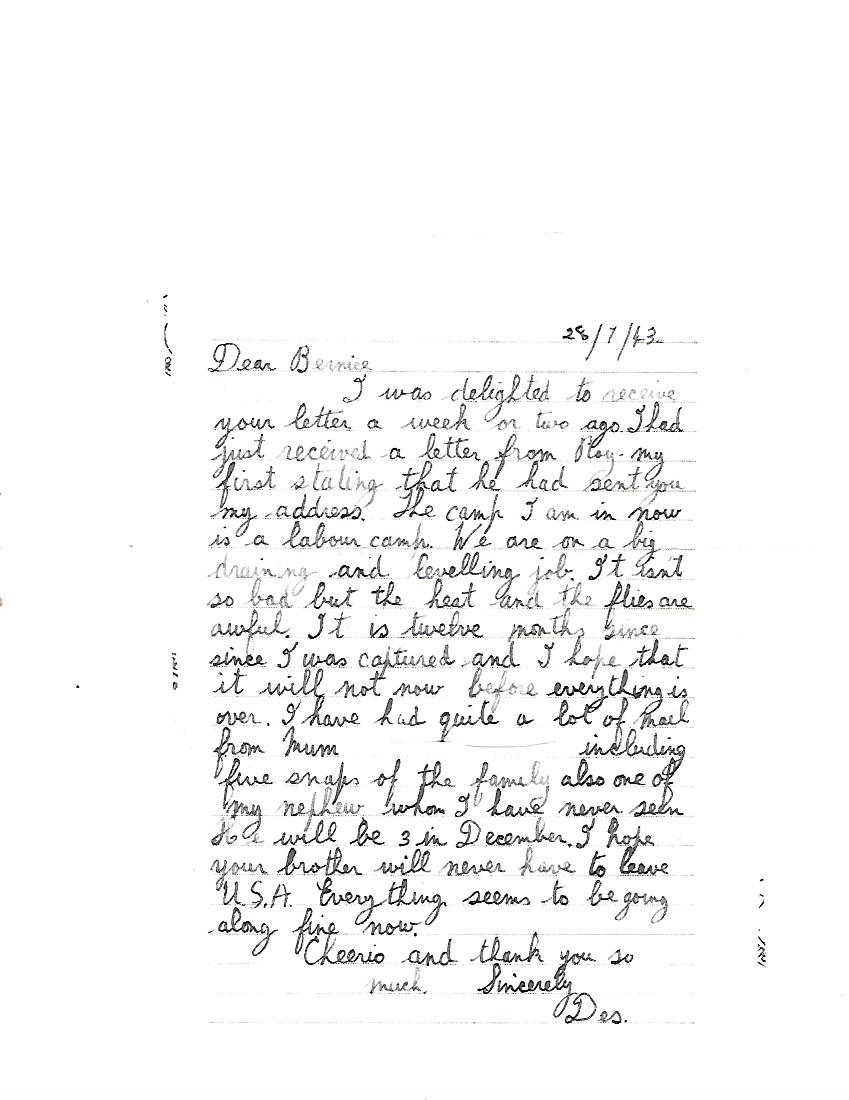 28/7/43.
Dear Bernice
I was delighted to receive
your letter a week or two ago. I had
just received a letter from Roy - my
first stating that he had sent you
my address. The camp I am in now
is a labour camp. We are on a big
draining and levelling job. It isn't
so bad but the heat and the flies are
awful. It is twelve months since
since I was captured and I hope that
it will not now before everything is
over. I have had quite a lot of mail
from Mum including
five snaps of the family also one of
my nephew whom I have never seen
He will be 3 in December. I hope
your brother will never have to leave
U.S.A. Everything seems to be going
along fine now.
Cheerio and thank you so
much. Sincerely
Des.